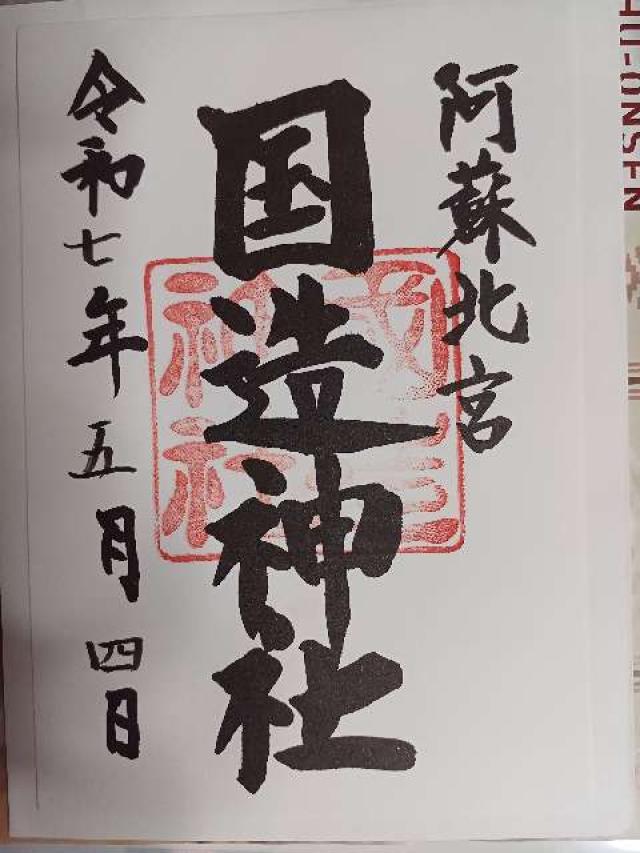 阿蘇北宮
国造神社
令和七年五月四日
國造神社
U-ONSEN